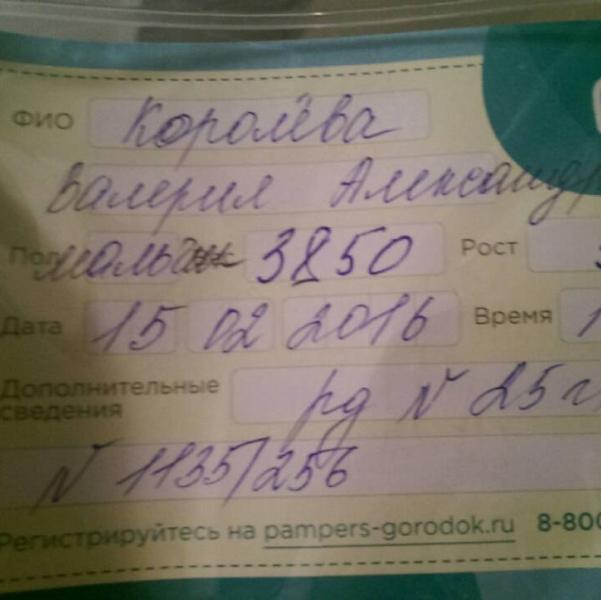 ФИО Королёва
Валерия Александр
Пол мальчик 3850 Рост
Дата 15 02 2016 Время 1
Дополнительные сведения рд N 25 г
N 1135/256
Регистрируйтесь на pampers-gorodok.ru 8-800